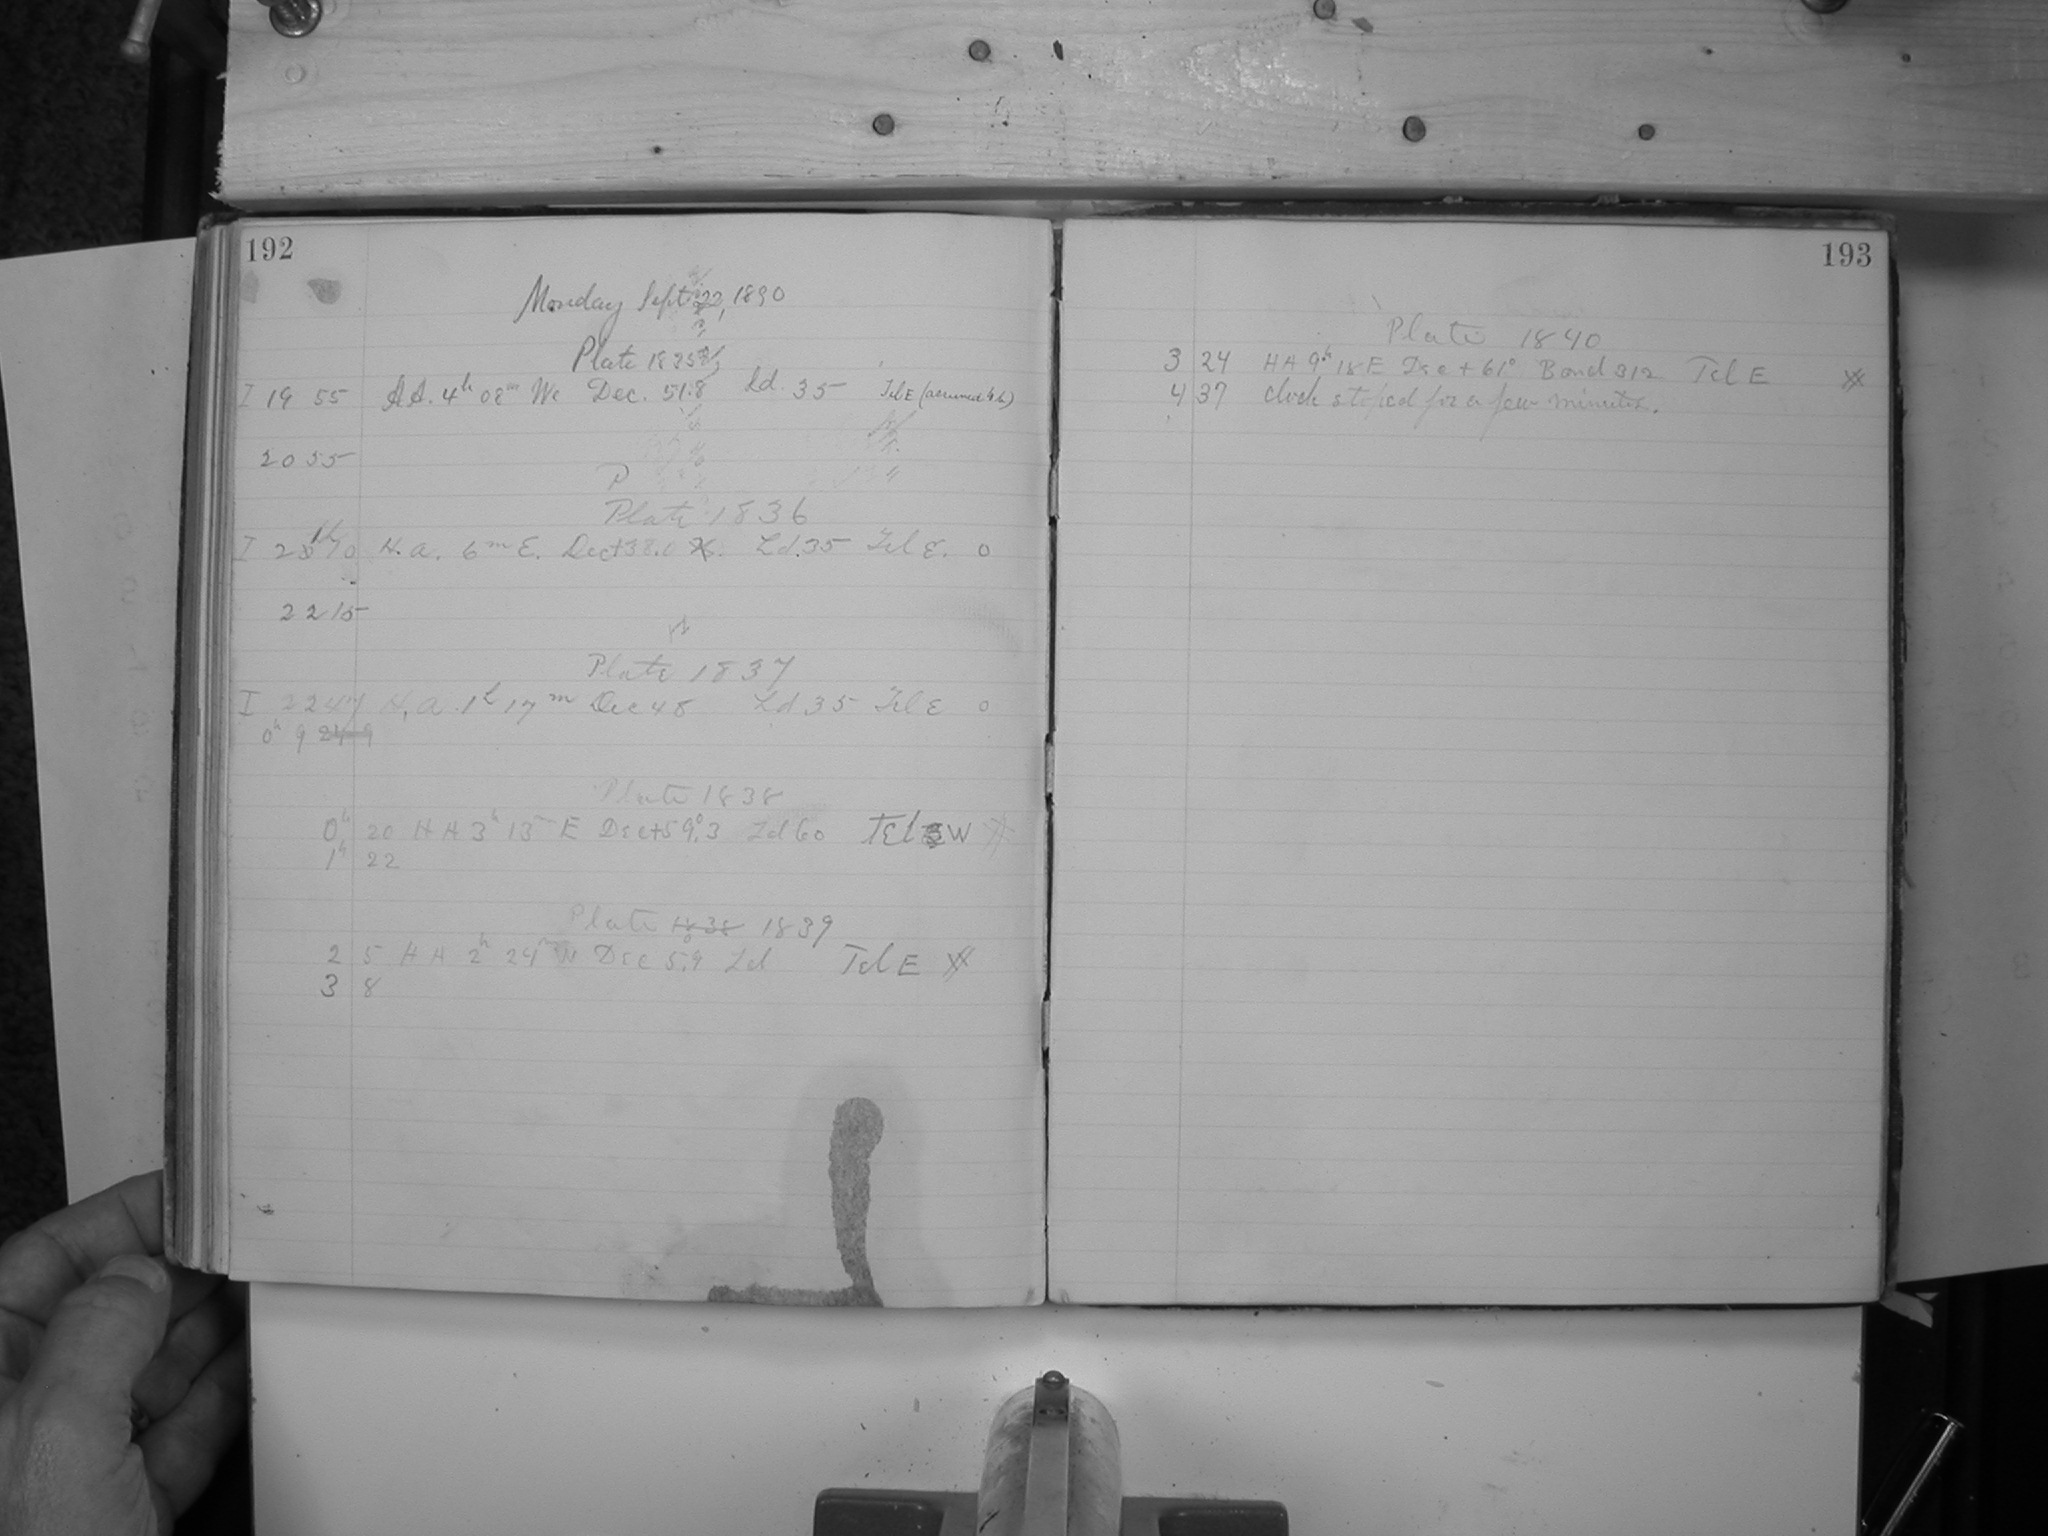 192
Monday Sept 22, 1890
Plate 1835
I 19 55 4h 08m We Dec. 51.8 Ld. 35 Tel E (assumed
20 55
P
Plate 1836
I H. a. 6m E. Dec +38.0 Ld. 35 Tel E. 0
22 15
Plate 1837
I 22 47 H. a. 1h 17m Dec 48 Ld 35 Tel E 0
0h 9 24 9
Plate 1838
0h 20 HA 3h 13m E Dec +59°.3 Ld 60 Tel W
1h 22
Plate 1838 1839
2 5 HA 2h 24m W Dec 5.9 Ld Tel E
3 8
193
Plate 1840
3 24 HA 9h 18 E Dec + 61° Bond 312 Tel E
4 37 clock stoped for a few minutes.